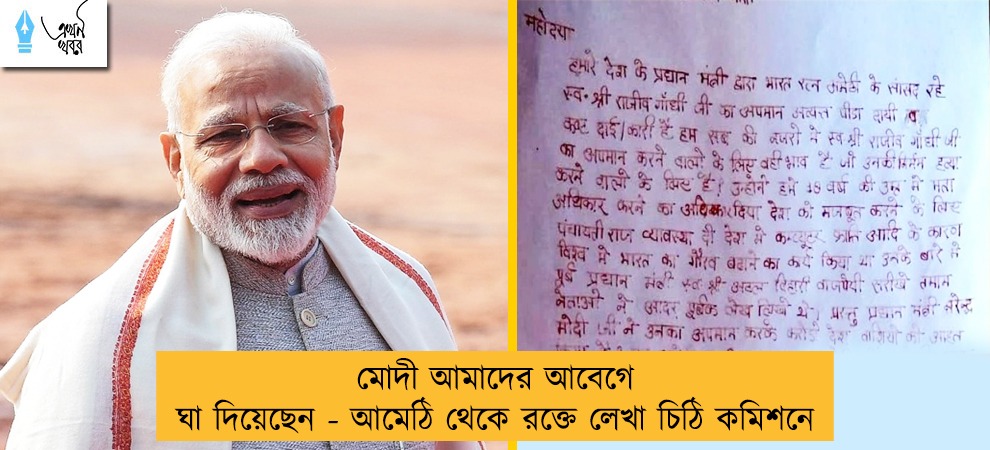 এখন
খবর
महोदया
हमारे देश के प्रधान मंत्री द्वारा भारत रत्न अमेठी के सांसद रहे
स्व. श्री राजीव गाँधी जी का अपमान अत्यन्त पीडा दायी व
कष्ट दाई/कारी है हम सब की नजरो मे स्व श्री राजीव गाँधी जी
का अपमान करने वालो के लिए वही भाव है जो उनकी निर्मम हत्या
करने वालो के लिए है। उन्होने हमे 18 वर्ष की उम्र मे मता
अधिकार करने का अधिकार दिया देश को मजबूत करने के लिए
पंचायती राज व्यावस्था दी देश मे कम्प्यूटर क्रान्ति आदि के कारण
विश्व मे भारत का गौरव बढाने का कार्य किया था उनके बारे मे
पूर्व प्रधान मंत्री स्व श्री अटल बिहारी वाजपेयी सरीखे तमाम
नेताओ ने आदर पूर्वक लेख लिखे थे। परन्तु प्रधान मंत्री नरेन्द्र
मोदी जी ने उनका अपमान करके करोडो देश वासियो को आहत
মোদী আমাদের আবেগে
ঘা দিয়েছেন - আমেঠি থেকে রক্তে লেখা চিঠি কমিশনে